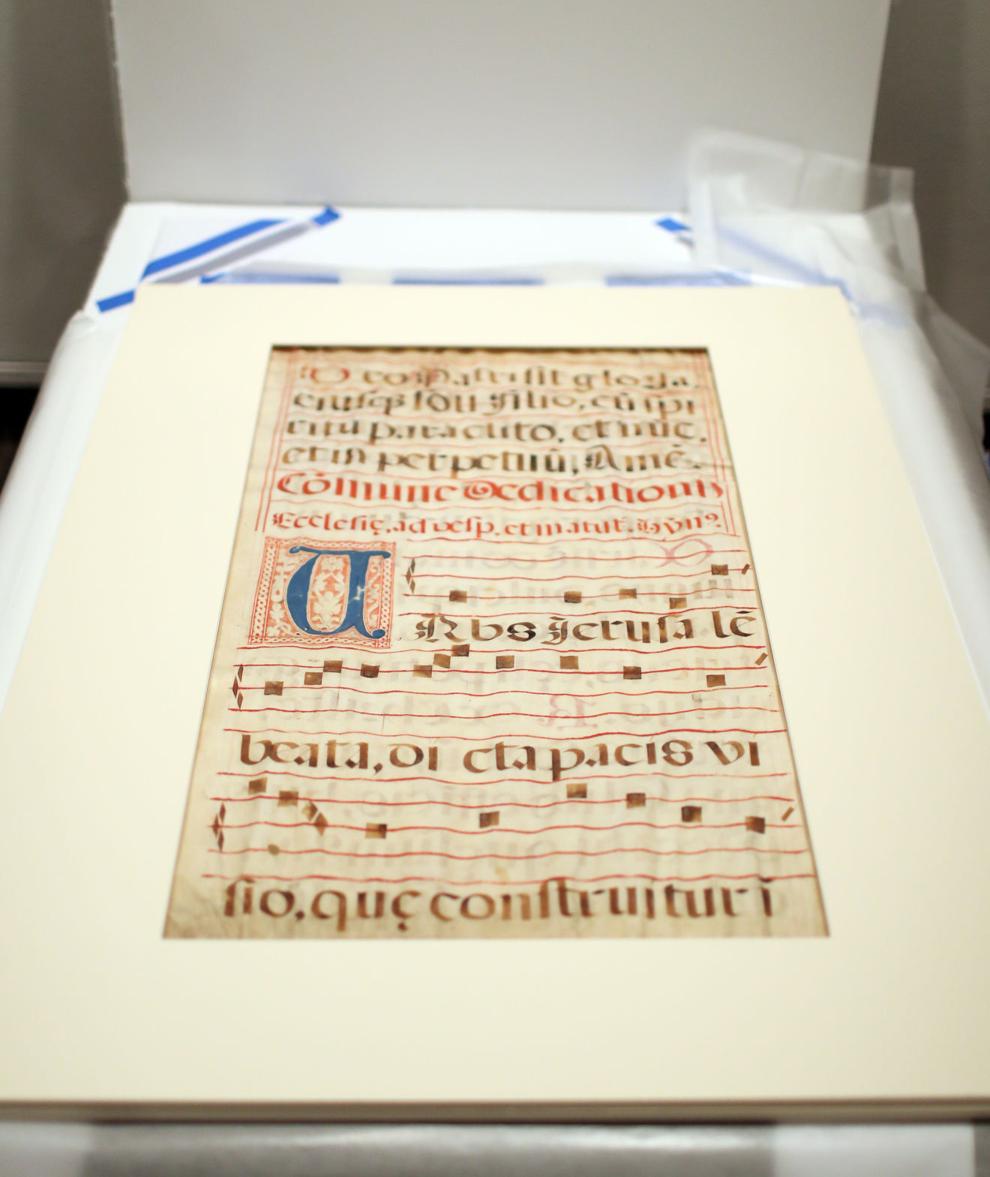 Deo Patri sit gloria,
eiusq; soli Filio, cū spi
ritu paraclito, et nūc,
et in perpetuū, Amē.
Cōmune Dedicationis
Ecclesię, ad vesp. et matut. Hyn?
URbs Jerusalē
beata, di cta pacis vi
sio, quę construitur i